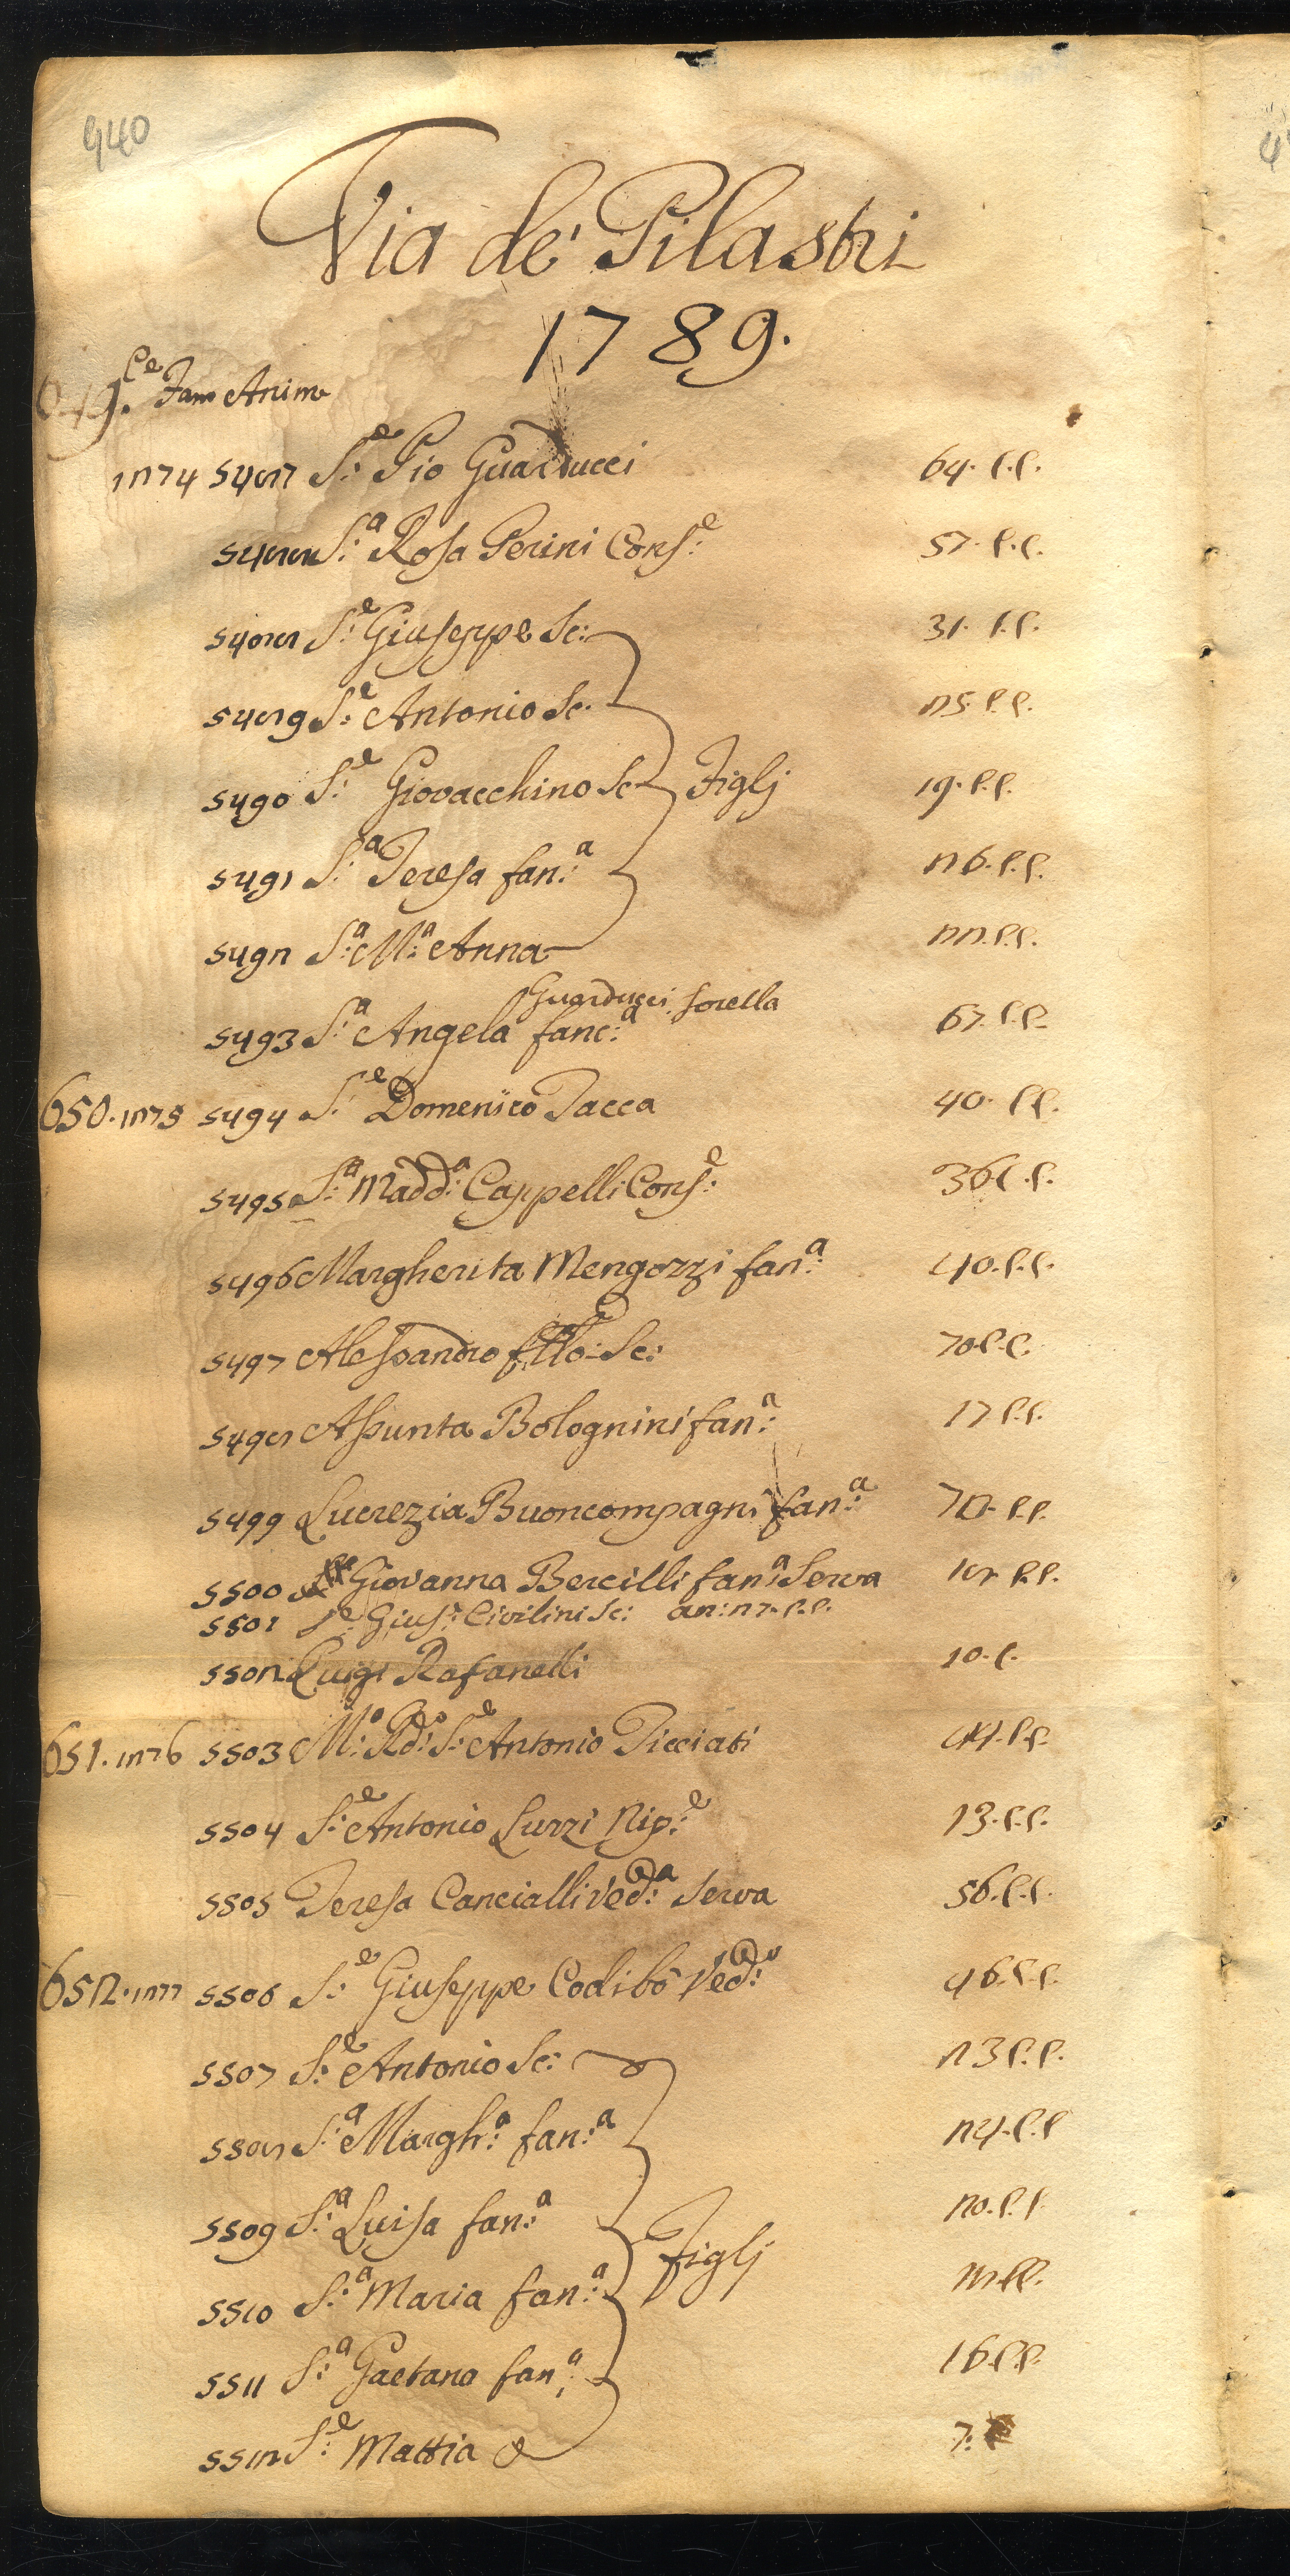 940
Via de' Pilastri
1789.
649. Ce Fam Anime
1274 5487 S:e Pio Guarducci 64. C.C.
5488 S:a Rosa Perini Cons:e 57. C.C.
5488 S:e Giuseppe Sc: 31. C.C.
5489 S:e Antonio Sc. 25. C.C.
5490 S:e Giovacchino Sc Figlj 19. C.C.
5491 S:a Teresa fan:a 26. C.C.
5492 S:a M:a Anna 22. C.C.
Guarducci sorella
5493 S:a Angela fanc:a 67. C.C.
650. 1275 5494 S:e Domenico Tacca 40. C.C.
5495 S:a Madd:a Cappelli Cons:e 36 C.C.
5496 Margherita Mengozzi fan:a 40. C.C.
5497 Alessandro Sc: 70. C.C.
5498 Assunta Bolognini fan:a 17 C.C.
5499 Lucrezia Buoncompagni fan:a 72. C.C.
5500 Giovanna Bercilli fan:a Serva 18 C.C.
5501 S:e Gius:e Civilini Sc: an: 27. C.C.
5502 Luigi Rafanelli 10. C.
651. 1276 5503 M:o Rd:o S:e Antonio Picciati C.C.
5504 S:e Antonio Luzzi Nip:e 13. C.C.
5505 Teresa Cancialli Ved:a Serva 56. C.C.
652. 1277 5506 S:e Giuseppe Codibò Ved:o 46. C.C.
5507 S:e Antonio Sc: 23 C.C.
5508 S:a Margh:a fan:a 24. C.C
5509 S:a Luisa fan:a 20. C.C
Figlj
5510 S:a Maria fan:a C.C.
5511 S:a Gaetana fan:a 16. C.C.
5512 S:e Mattia 7.